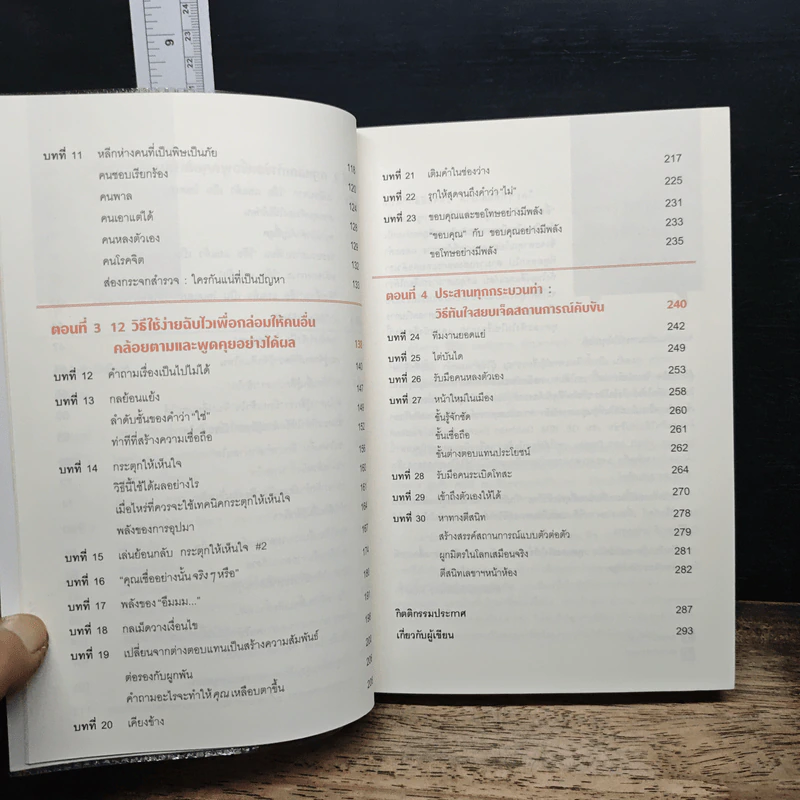 บทที่ 11 หลีกห่างคนที่เป็นพิษเป็นภัย 118
คนชอบเรียกร้อง 120
คนพาล 124
คนเอาแต่ได้ 128
คนหลงตัวเอง 129
คนโรคจิต 132
ส่องกระจกสำรวจ : ใครกันแน่ที่เป็นปัญหา 133
ตอนที่ 3 12 วิธีใช้ง่ายฉับไวเพื่อกล่อมให้คนอื่น
คล้อยตามและพูดคุยอย่างได้ผล
บทที่ 12 คำถามเรื่องเป็นไปไม่ได้ 140
บทที่ 13 กลย้อนแย้ง 147
ลำดับชั้นของคำว่า "ใช่" 149
ท่าทีที่สร้างความเชื่อถือ 152
บทที่ 14 กระตุกให้เห็นใจ 156
วิธีนี้ใช้ได้ผลอย่างไร 160
เมื่อไหร่ที่ควรจะใช้เทคนิคกระตุกให้เห็นใจ 164
พลังของการอุปมา 167
บทที่ 15 เล่นย้อนกลับ กระตุกให้เห็นใจ #2 174
บทที่ 16 "คุณเชื่ออย่างนั้นจริงๆ หรือ"
บทที่ 17 พลังของ "อืมมม..."
บทที่ 18 กลเม็ดวางเงื่อนไข
บทที่ 19 เปลี่ยนจากต่างตอบแทนเป็นสร้างความสัมพันธ์
ต่อรองกับผูกพัน
คำถามอะไรจะทำให้คุณเหลือบตาขึ้น
บทที่ 20 เคียงข้าง
บทที่ 21 เติมคำในช่องว่าง 217
บทที่ 22 รุกให้สุดจนถึงคำว่า "ไม่" 225
บทที่ 23 ขอบคุณและขอโทษอย่างมีพลัง 231
"ขอบคุณ" กับ ขอบคุณอย่างมีพลัง 233
ขอโทษอย่างมีพลัง 235
ตอนที่ 4 ประสานทุกกระบวนท่า :
วิธีทันใจสยบเจ็ดสถานการณ์คับขัน 240
บทที่ 24 ทีมงานยอดแย่ 242
บทที่ 25 ไต่บันได 249
บทที่ 26 รับมือคนหลงตัวเอง 253
บทที่ 27 หน้าใหม่ในเมือง 258
ขั้นรู้จักชัด 260
ขั้นเชื่อถือ 261
ขั้นต่างตอบแทนประโยชน์ 262
บทที่ 28 รับมือคนระเบิดโทสะ 264
บทที่ 29 เข้าถึงตัวเองให้ได้ 270
บทที่ 30 หาทางตีสนิท 278
สร้างสรรค์สถานการณ์แบบตัวต่อตัว 279
ผูกมิตรในโลกเสมือนจริง 281
ตีสนิทเลขาฯหน้าห้อง 282
กิตติกรรมประกาศ 287
เกี่ยวกับผู้เขียน 293
9
24
23
22